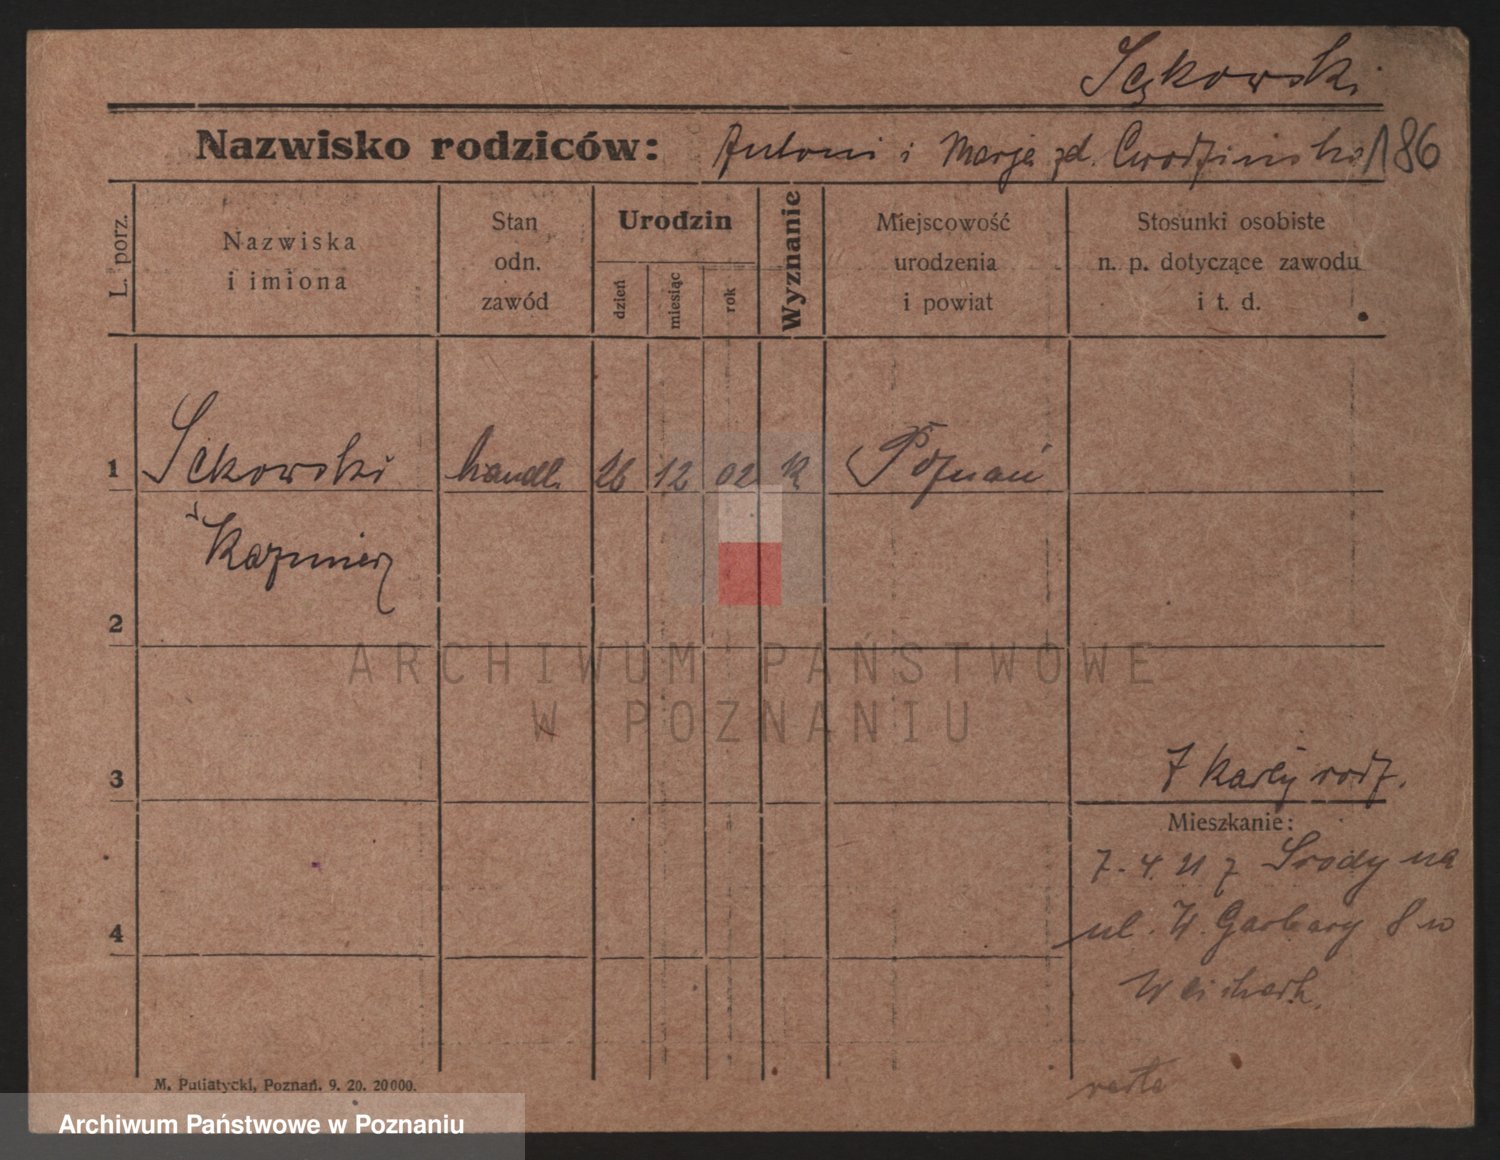 Sękowski
Nazwisko rodziców: Antoni i Marja zd. 186
L. porz.
Nazwiska
i imiona
Stan
odn.
zawód
Urodzin
dzień
miesiąc
rok
Wyznanie
Miejscowość
urodzenia
i powiat
Stosunki osobiste
n. p. dotyczące zawodu
i t. d.
1 Sękowski handl. 26 12 02 k Poznań
Kazimierz
2
ARCHIWUM PAŃSTWOWE
W POZNANIU
3
z karty rodz.
Mieszkanie:
7. 4. 21 z Środy na
4
ul. W. Garbary 8 w
M. Putiatycki, Poznań. 9. 20. 20000.
Archiwum Państwowe w Poznaniu